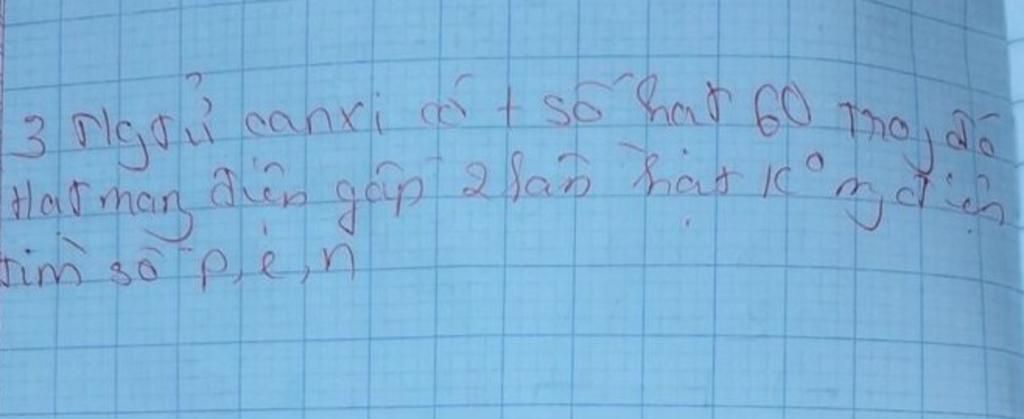 3 Ngtử canxi có t số hạt 60 Trg đó
Hạt mang điện gấp 2 lần hạt k° mg điện
tìm số p, e, n